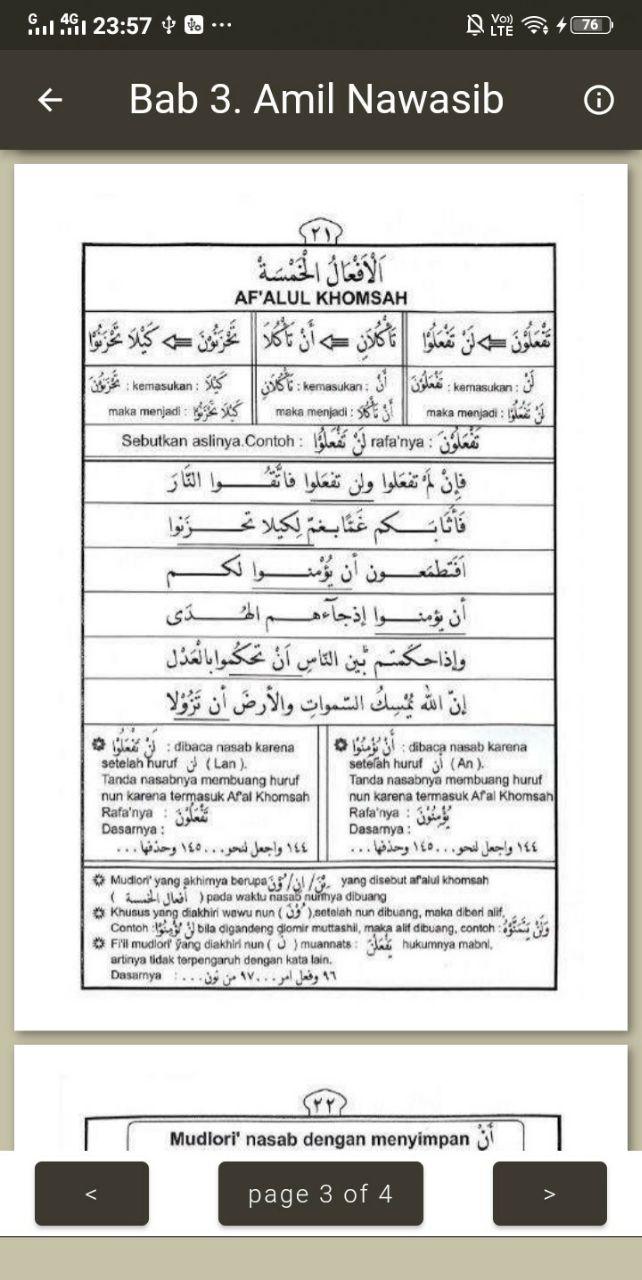 G 4G 23:57 ... Vo)) LTE 76
Bab 3. Amil Nawasib
٢١
اَلْأَفْعَالُ الْخَمْسَةُ
AF'ALUL KHOMSAH
تَفْعَلُوْنَ ⇐ لَنْ تَفْعَلُوْا
تَأْكُلَانِ ⇐ أَنْ تَأْكُلَا
تَحْزَنُوْنَ ⇐ كَيْلَا تَحْزَنُوْا
لَنْ : kemasukan : تَفْعَلُوْنَ
maka menjadi : لَنْ تَفْعَلُوْا
أَنْ : kemasukan : تَأْكُلَانِ
maka menjadi : أَنْ تَأْكُلَا
كَيْلَا : kemasukan : تَحْزَنُوْنَ
maka menjadi : كَيْلَا تَحْزَنُوْا
Sebutkan aslinya.Contoh : لَنْ تَفْعَلُوْا rafa'nya : تَفْعَلُوْنَ
فَإِنْ لَمْ تفعَلوا ولن تفعَلوا فاتَّقُوا النَّارَ
فَأَثَابَكم غَمًّا بغمّ لِكيلا تحزَنوا
اَفَتَطمَعون أن يُؤْمنوا لكم
أن يؤمنوا إذجآءهم الهُدَى
وإذاحكَمتم بَين النّاسِ اَنْ تحكُموابالعَدْل
إنّ الله يُمْسِكُ السّموات والأرضَ أن تَزُوْلا
لَنْ تَفْعَلُوْا : dibaca nasab karena
setelah huruf لن ( Lan ).
Tanda nasabnya membuang huruf
nun karena termasuk Af'al Khomsah
Rafa'nya : تَفْعَلُوْنَ
Dasarnya :
١٤٤ واجعل لنحو...١٤٥ وحذفها...
أَنْ يُؤْمِنُوْا : dibaca nasab karena
setelah huruf أن ( An ).
Tanda nasabnya membuang huruf
nun karena termasuk Af'al Khomsah
Rafa'nya : يُؤْمِنُوْنَ
Dasarnya :
١٤٤ واجعل لنحو...١٤٥ وحذفها...
Mudlori' yang akhirnya berupa وْنَ/انِ/يْنَ yang disebut af'alul khomsah
( أفعال الخمسة ) pada waktu nasab nunnya dibuang
Khusus yang diakhiri wawu nun ( وْنَ ),setelah nun dibuang, maka diberi alif,
Contoh : لَنْ تُؤْمِنُوْا bila digandeng dlomir muttashil, maka alif dibuang, contoh : وَلَنْ يَتَمَنَّوْهُ
Fi'il mudlori' yang diakhiri nun ( نَ ) muannats : يَفْعَلْنَ hukumnya mabni,
artinya tidak terpengaruh dengan kata lain.
Dasarnya : ٩٦ وفعل امر...٩٧ من نون...
٢٢
Mudlori' nasab dengan menyimpan أَنْ
<
page 3 of 4
>